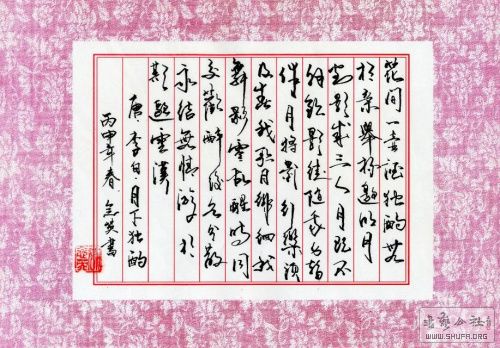 花間一壺酒獨酌無
相親舉杯邀明月
對影成三人月既不
解飲影徒隨我身暫
伴月將影行樂須
及春我歌月徘徊我
舞影零亂醒時同
交歡醉後各分散
永結無情遊相
期邈雲漢
唐李白月下獨酌
丙申年春 書
公社
WWW.SHUFA.ORG